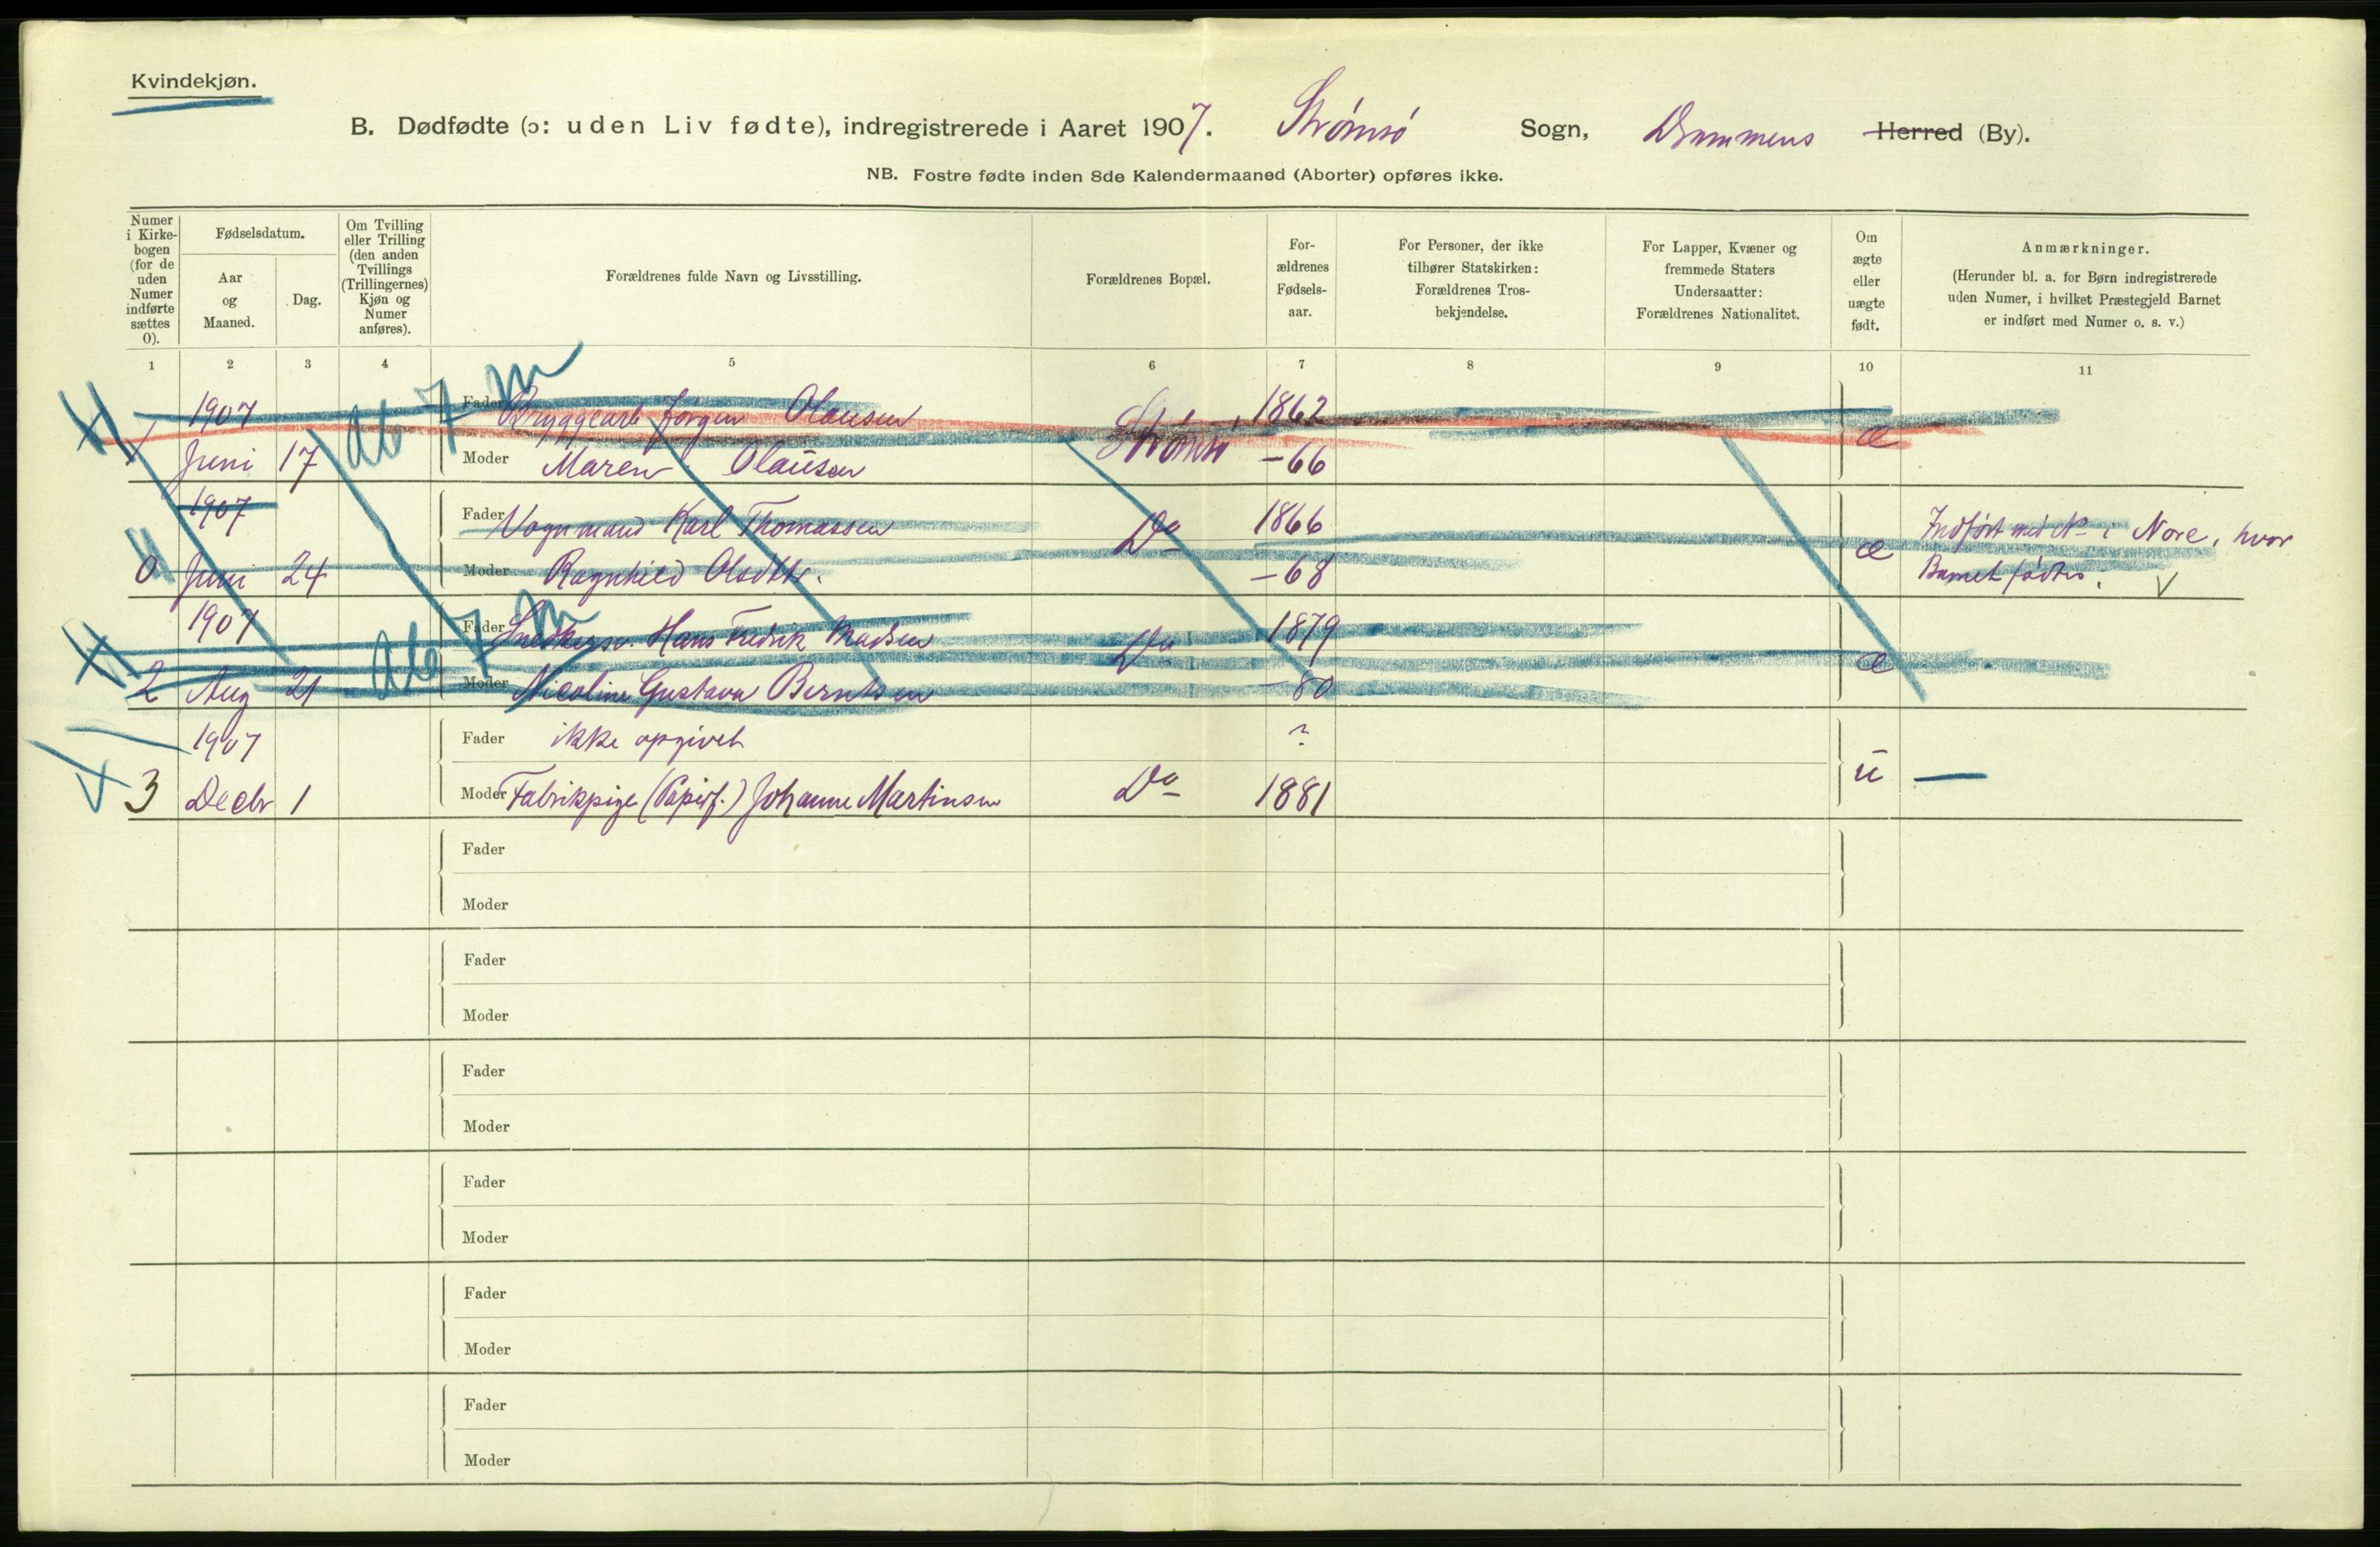 Kvindekjøn.
B. Dødfødte (ɔ: uden Liv fødte), indregistrerede i Aaret 1907. Strømsø Sogn, Drammens Herred (By).
NB. Fostre fødte inden 8de Kalendermaaned (Aborter) opføres ikke.
Numer i Kirke-bogen (for de uden Numer indførte sættes 0).
Fødselsdatum.
Aar og Maaned.
Dag.
Om Tvilling eller Trilling (den anden Tvillings (Trillingernes) Kjøn og Numer anføres).
Forældrenes fulde Navn og Livsstilling.
Forældrenes Bopæl.
For-ældrenes Fødsels-aar.
For Personer, der ikke tilhører Statskirken: Forældrenes Tros-bekjendelse.
For Lapper, Kvæner og fremmede Staters Undersaatter: Forældrenes Nationalitet.
Om ægte eller uægte født.
Anmærkninger.
(Herunder bl. a. for Børn indregistrerede uden Numer, i hvilket Præstegjeld Barnet er indført med Numer o. s. v.)
1 2 3 4 5 6 7 8 9 10 11
ab 7 m
1907 Fader Bryggearb Jørgen Olausen Strømsø 1862
1 Juni 17 Moder Maren Olausen - 66 æ
1907 Fader Vognmand Karl Thomassen Do 1866 Indført med No i Nore, hvor
0 Juni 24 Moder Ragnhild Olsdtr. - 68 æ Barnet fødtes. V
ab 7 m
1907 Fader Snedkersv. Hans Fredrik Madsen Do 1879
2 Aug 21 Moder Nicoline Gustava Berntsen - 80 æ
1907 Fader ikke opgivet ?
3 Decbr 1 Moder Fabrikpige (Papirf.) Johanne Martinsen Do 1881 u —
Fader
Moder
Fader
Moder
Fader
Moder
Fader
Moder
Fader
Moder
Fader
Moder